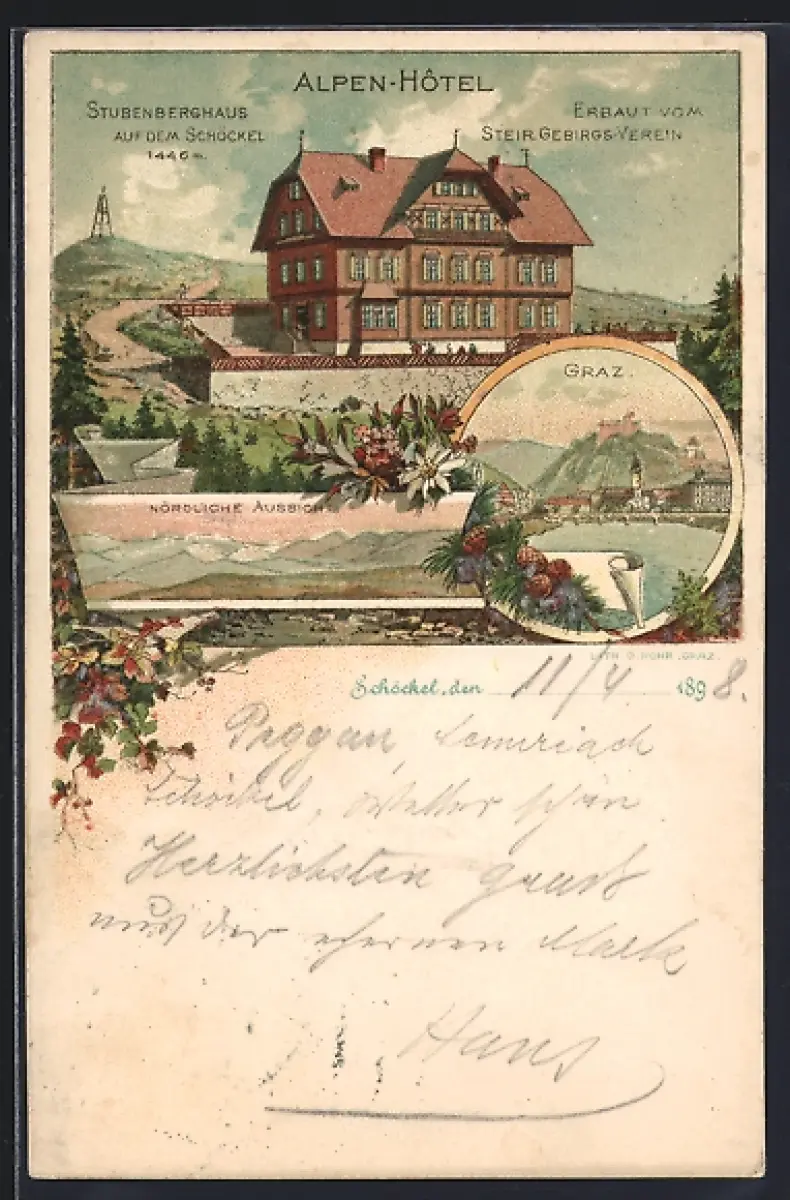 ALPEN-HÔTEL
STUBENBERGHAUS
AUF DEM SCHÖCKEL
1446 m.
ERBAUT VOM
STEIR. GEBIRGS-VEREIN
GRAZ.
NÖRDLICHE AUSSICHT
LITH. O. ROHR, GRAZ.
Schöckel, den 11/4 1898.
Peggau, Semriach
Schöckel, Wetter schön.
Herzlichsten Gruß
aus der ehernen Mark
Hans